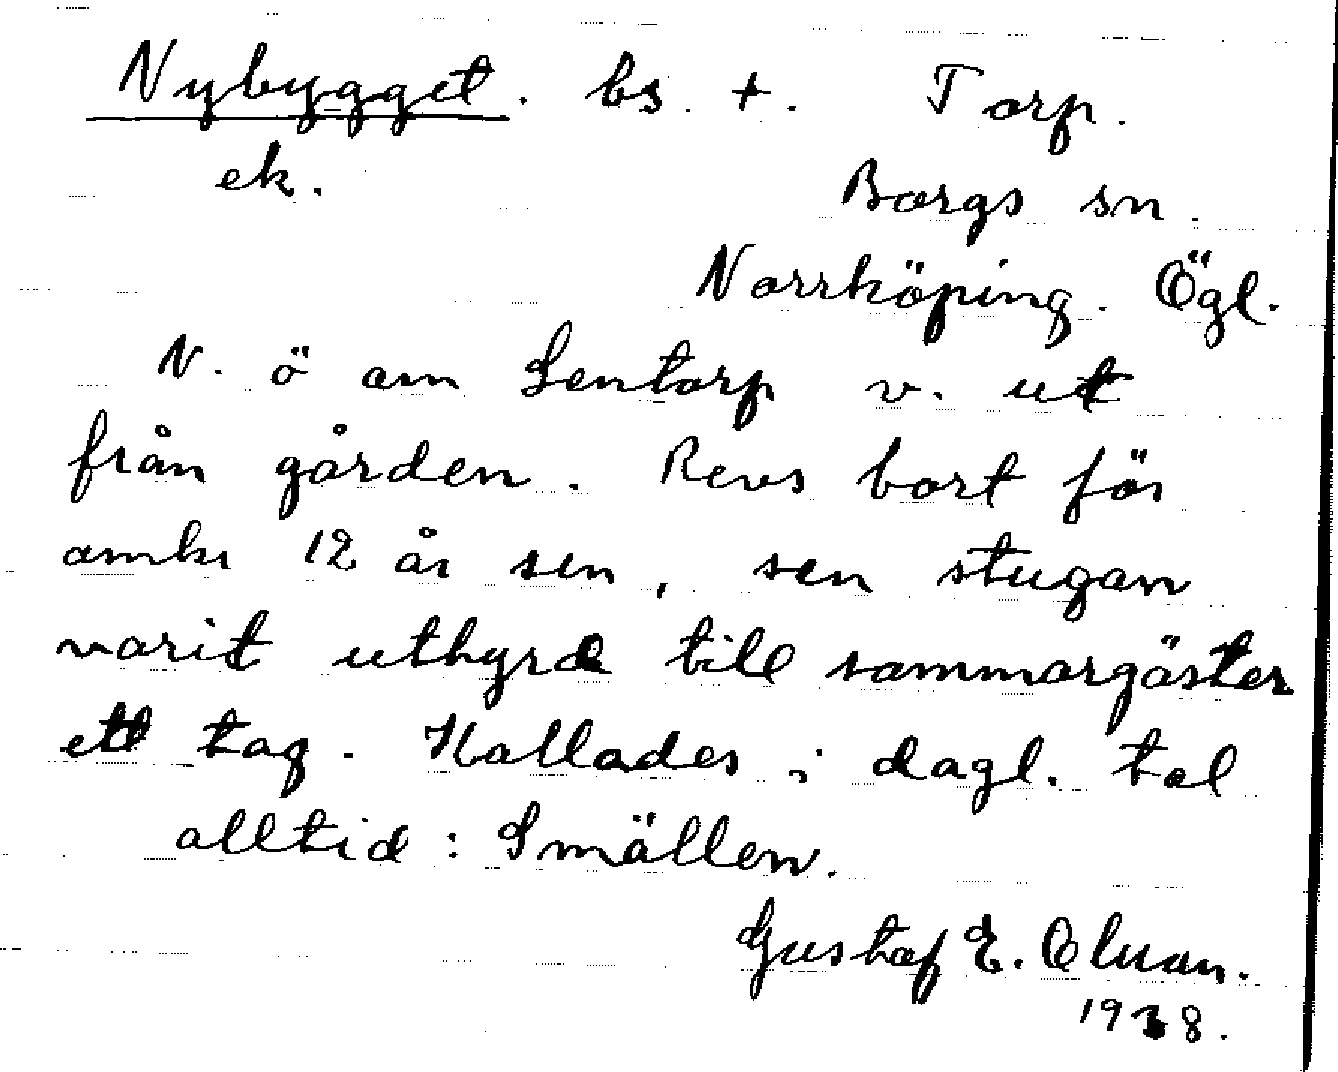 Nybygget. bs. +. Torp.
ek. Borgs sn.
Norrköping. Ögl.
N. ö om Sentorp v. ut
från gården. Revs bort för
omkr 12 år sen, sen stugan
varit uthyrd till sommargäster
ett tag. Kallades i dagl. tal
alltid: Smällen.
Gustaf E.
1938.